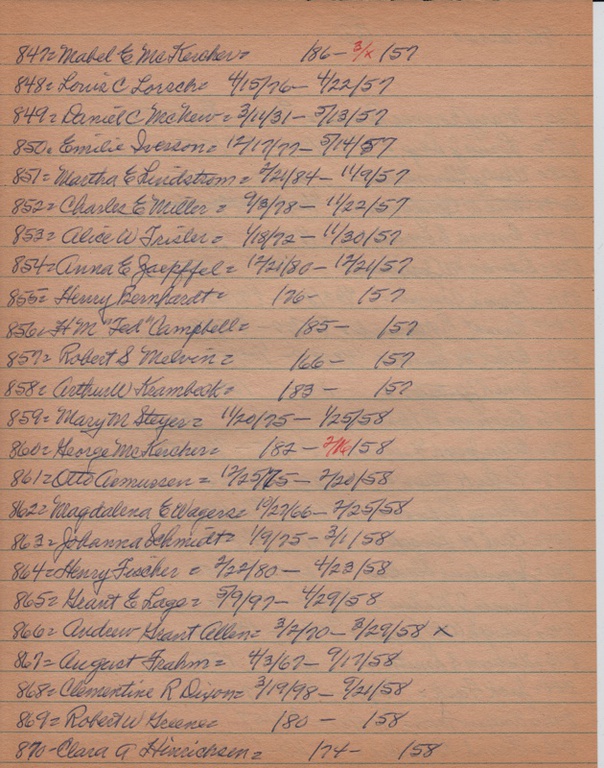 847= Mabel E McKercher= /86- 3/x/57
848= Louis C Lorsch= 4/15/76- 4/22/57
849= Daniel C McNew= 3/11/31- 5/13/57
850= Emilie Iverson= 12/17/77- 5/14/57
851= Martha E Lindstrom= 2/21/84- 11/9/57
852= Charles E Miller= 9/3/78- 11/22/57
853= Alice W Frisler= 1/18/72- 11/30/57
854= Anna E Zaepffel= 12/21/80- 12/21/57
855= Henry Bernhardt= /76- /57
856= H M "Ted" Campbell= /85- /57
857= Robert S Melvin= /66- /57
858= Arthur W Kambeck= /83- /57
859= Mary M Steyer= 11/20/75- 1/25/58
860= George McKercher= /82- /58
861= Otto Asmussen= 12/25/75- 2/20/58
862= Magdalena E Wagers= 10/27/66- 2/25/58
863= Johanna Schmidt= 1/9/75- 3/1/58
864= Henry Fischer= 2/22/80- 4/23/58
865= Grant E Lage= 5/9/97- 4/29/58
866= Andrew Grant Allen= 3/2/70- 3/29/58 x
867= August Frahm= 4/3/67- 9/17/58
868= Clementine R Dixon= 3/19/98- 9/21/58
869= Robert W Greene= /80- /58
870- Clara A Hinrichsen= /74- /58